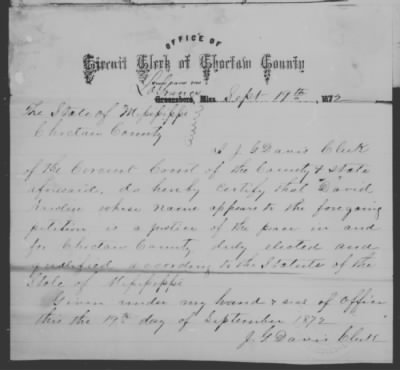 OFFICE OF
Circuit Clerk of Choctaw County
Greensboro, Miss. Sept 19th 1872
The State of Mississippi
Choctaw County
I J. G Davis Clerk
of the Circuit Court of the County & State
aforesaid, do hereby certify that David
whose name appears to the foregoing
petition is a justice of the peace in and
for Choctaw County duly elected and
qualified according to the Statutes of the
State of Mississippi
Given under my hand & seal of Office
this the 19th day of September 1872
J. G Davis Clerk